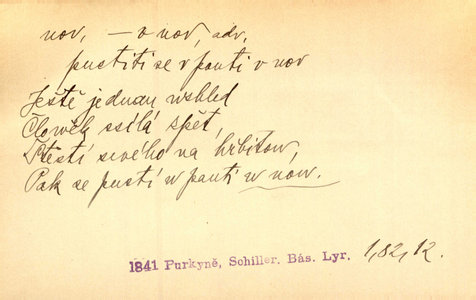 nov, — v nov, adv,
pustiti se v pouti v nov
Ještě jednau wzhled
Člowěk ssílá spět,
Štěstí swého na hřbitow,
Pak se pustí w pautí w now.
1841 Purkyně, Schiller. Bás. Lyr. 1,82, K.